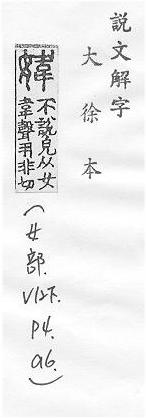 説文解字
大徐本
媁
不說皃从女
韋聲羽非切
(女部.V12下.P4.a6.)